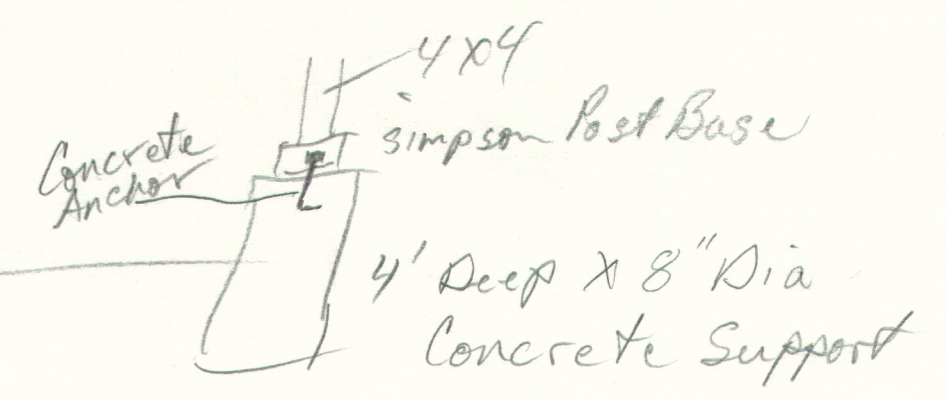 4x4
simpson Post Base
Concrete
Anchor
4' Deep X 8" Dia
Concrete Support